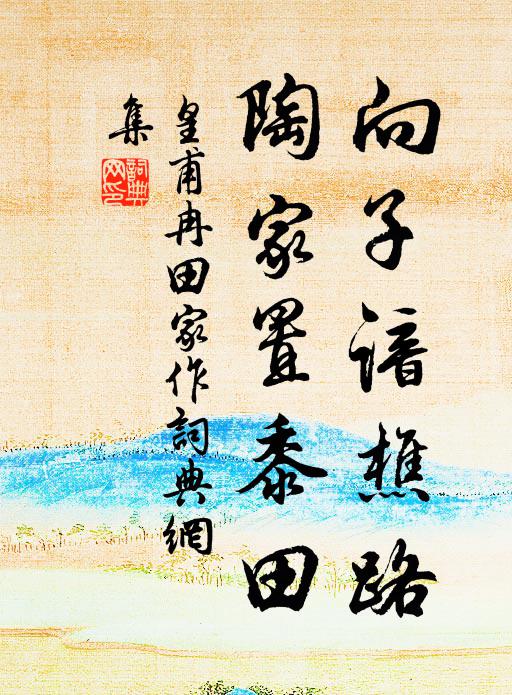 向子諳樵路
陶家置黍田
皇甫冉田家作詞典網
集
詞典
网印